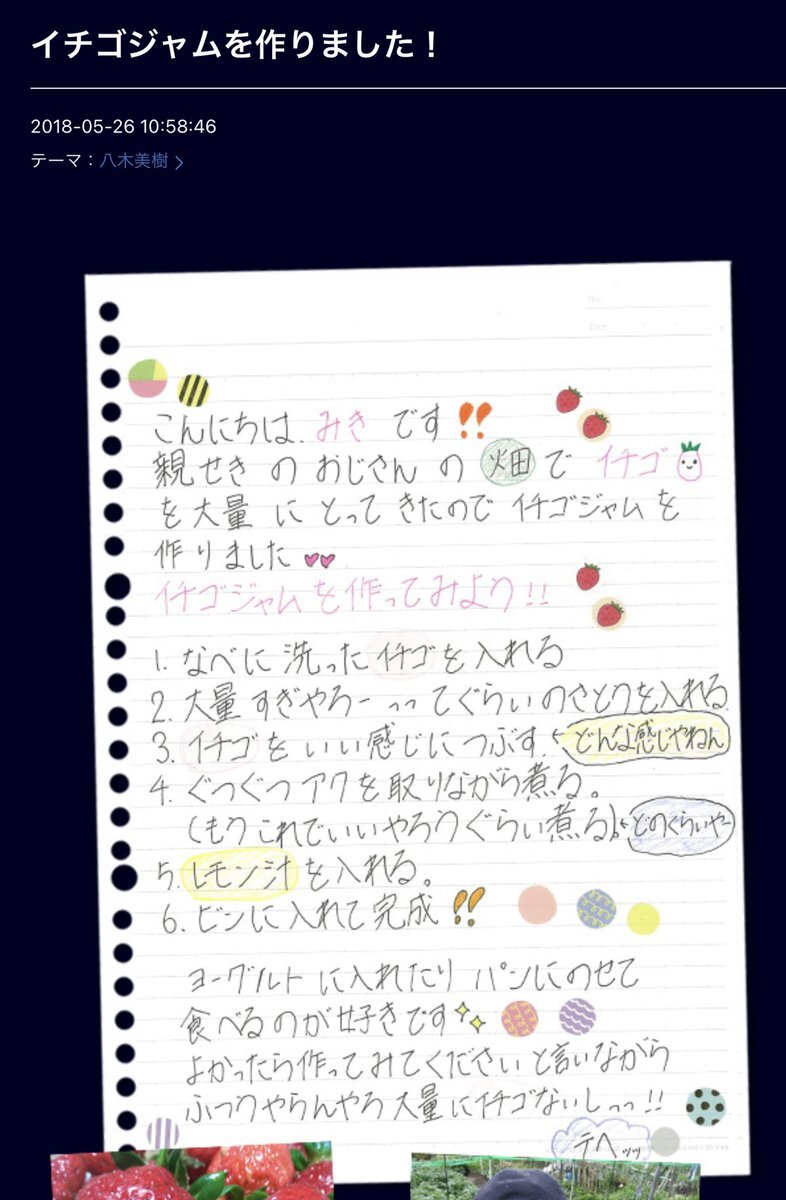 イチゴジャムを作りました！
2018-05-26 10:58:46
テーマ：八木美樹 >
こんにちは、みき です‼
親せき の おじさん の 畑 で イチゴ
を 大量 に とって きたので イチゴジャム を
作りました
イチゴジャム を 作って みよう!!
1. なべに 洗った イチゴ を 入れる
2. 大量 すぎやろー っってぐらい のさとうを入れる
3. イチゴ を いい感じに つぶす。← どんな感じやねん
4. ぐつぐつ アク を 取り ながら 煮る。
(もう これでいいやろうぐらい煮る)← どのくらいやー
5. レモン汁 を 入れる。
6. ビンに 入れて 完成‼
ヨーグルト に入れたり パンにのせて
食べるのが 好きです
よかったら 作って みて ください と言いながら
ふつうやらんやろ 大量にイチゴないしっっ!!
テヘッッ